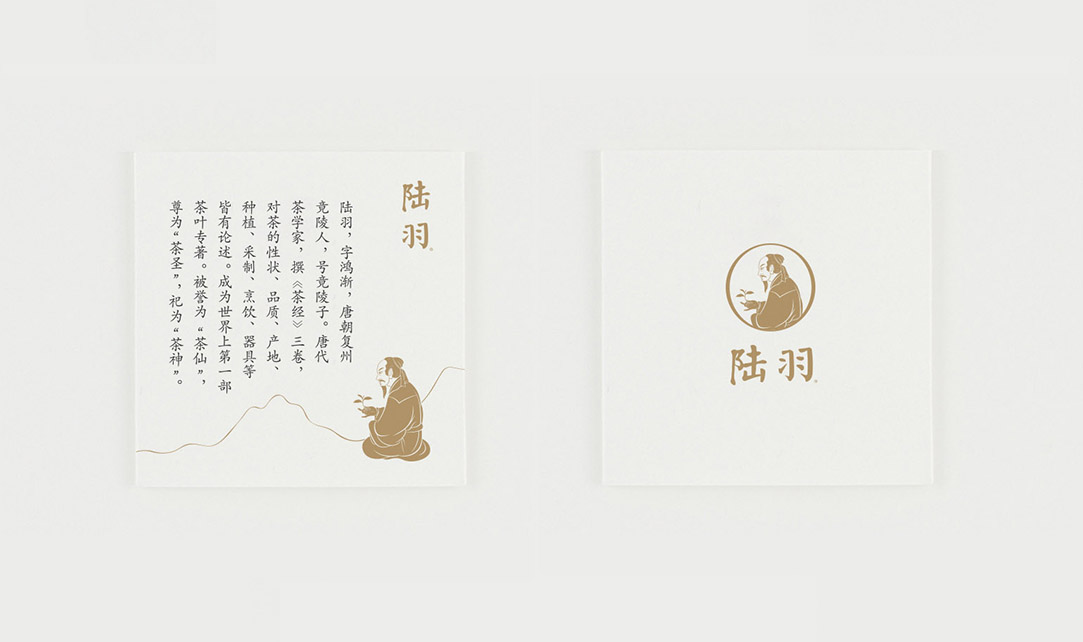 陆羽
陆羽，字鸿渐，唐朝复州
竟陵人，号竟陵子。唐代
茶学家，撰《茶经》三卷，
对茶的性状、品质、产地、
种植、采制、烹饮、器具等
皆有论述。成为世界上第一部
茶叶专著。被誉为“茶仙”，
尊为“茶圣”，祀为“茶神”。
陆羽